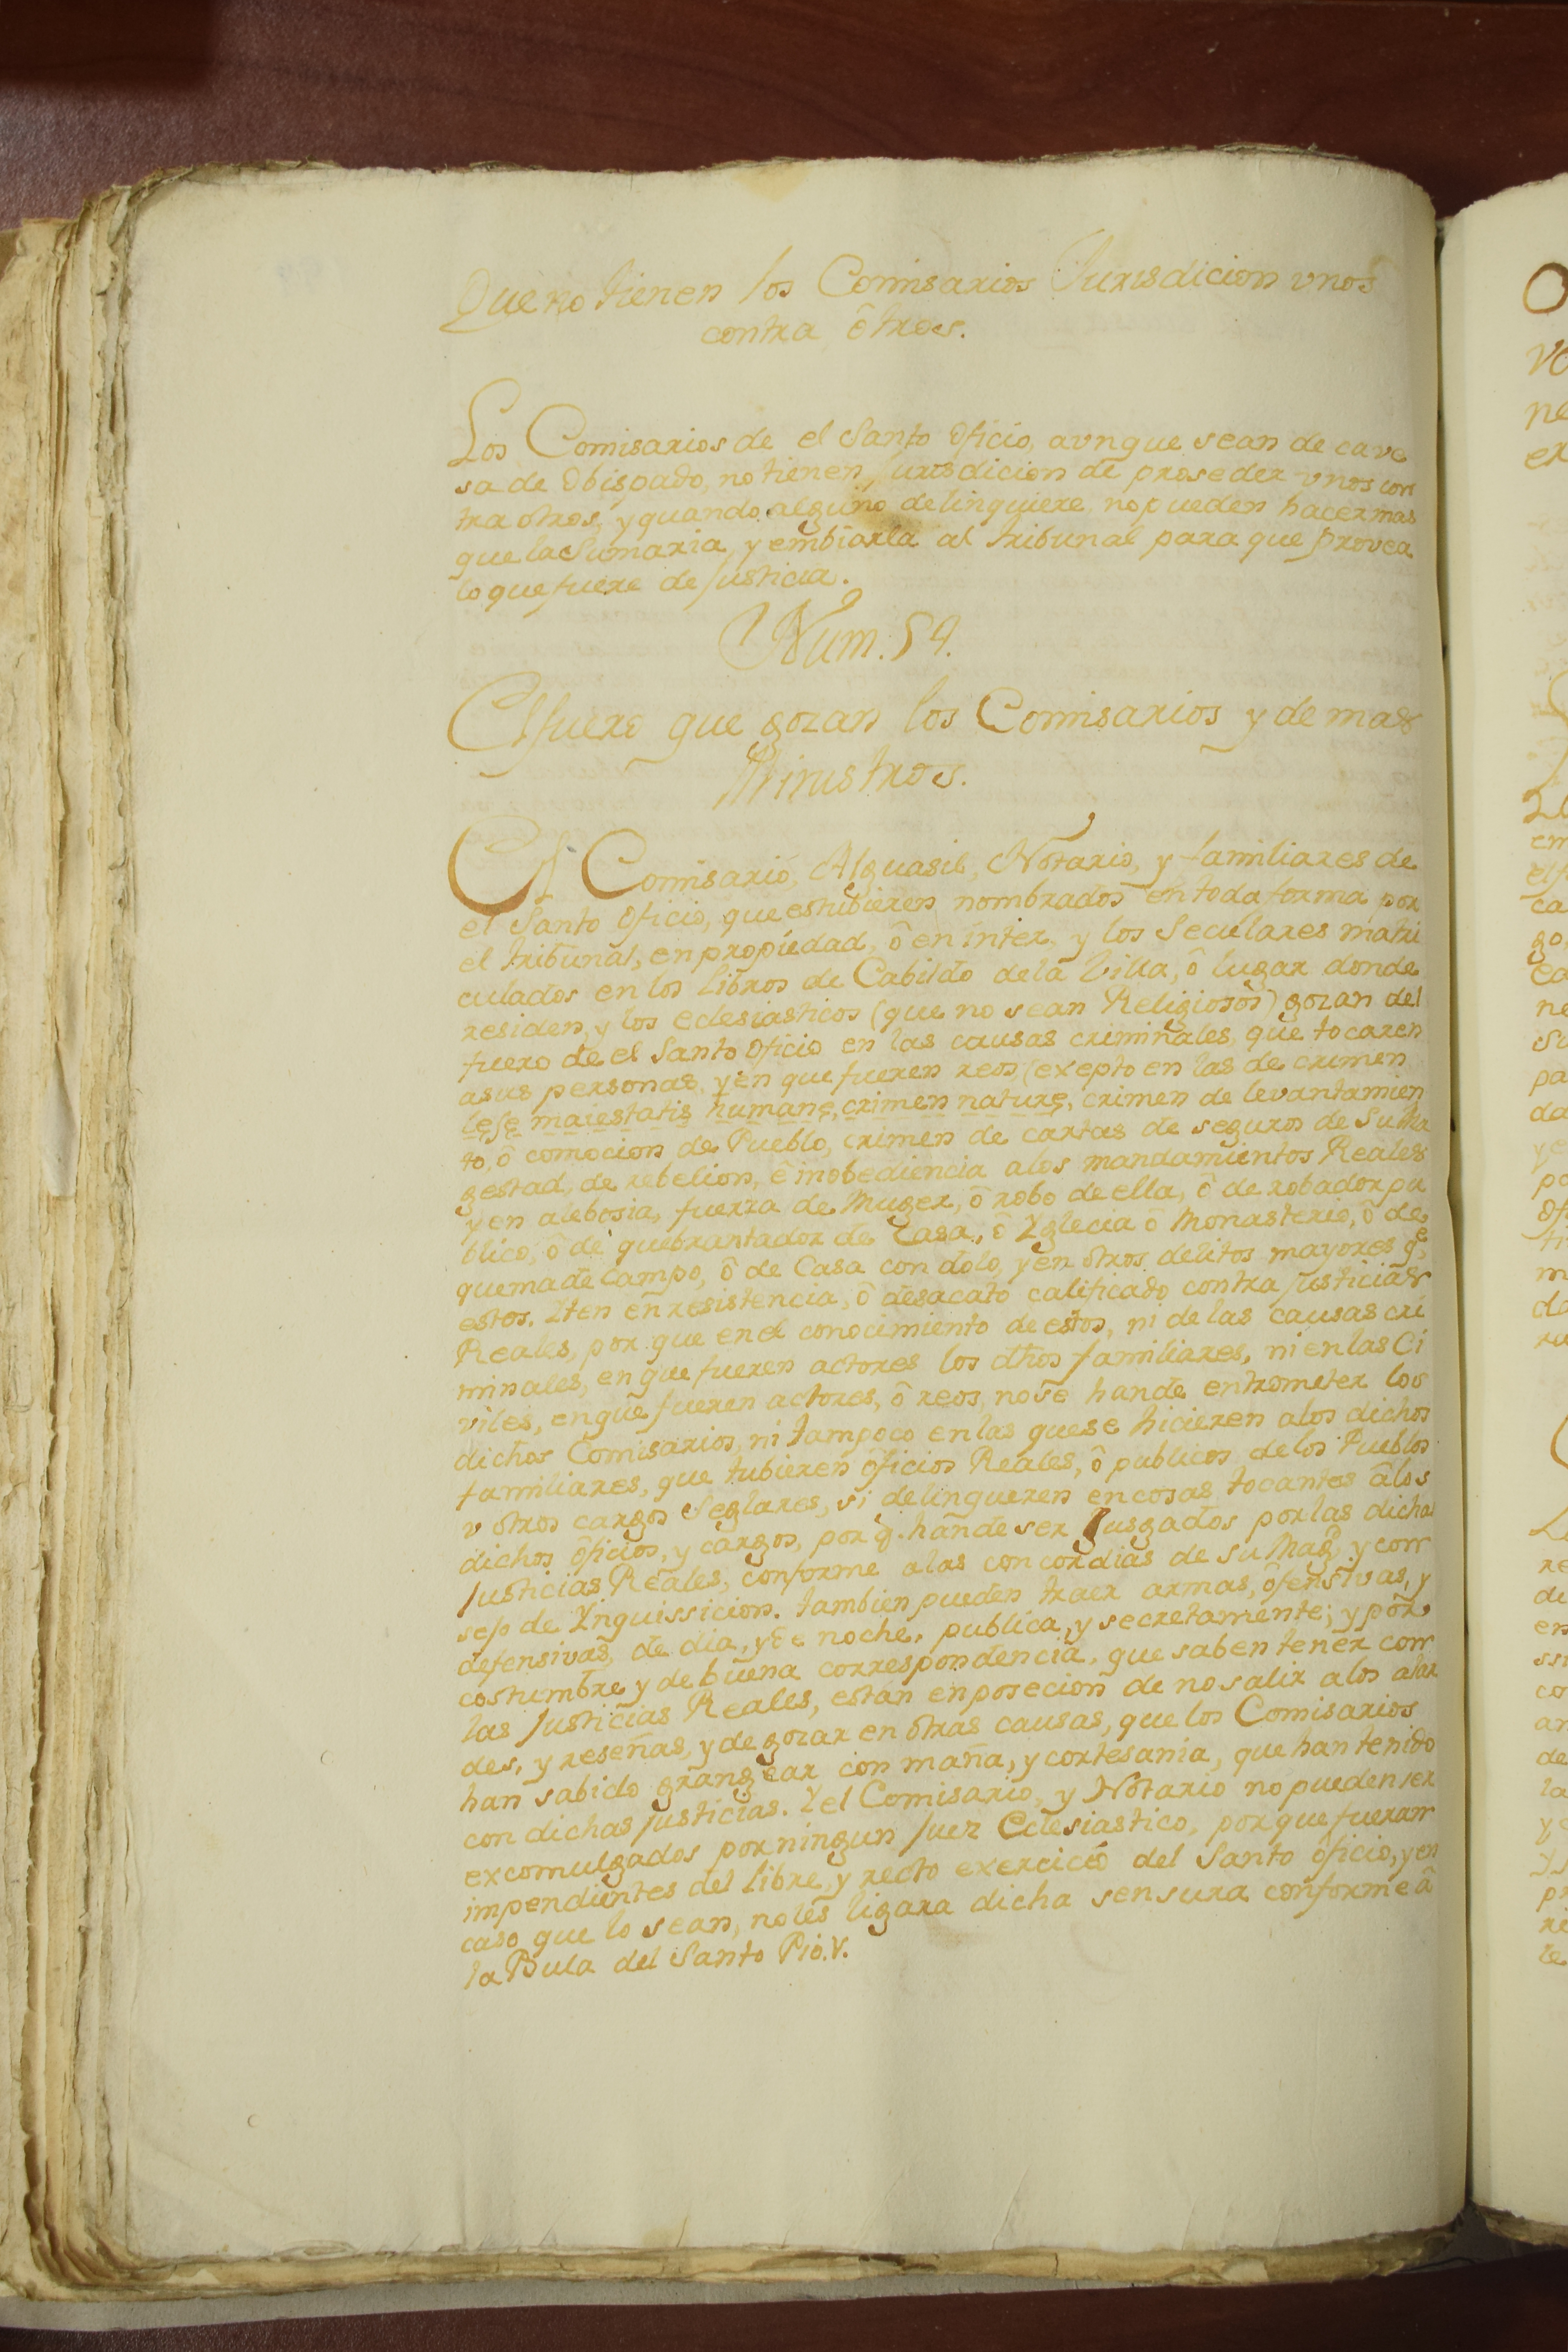 Que no tienen los Comisarios Jurisdicion vnos
contra ôtros.
Los Comisarios de el Santo Oficio, avnque sean de cave
sa de Obispado, no tienen Jurisdicion de proseder vnos con
tra otros, y quando alguno delinquiere no pueden hacer mas
que la Sumaria, y embiarla al tribunal para que provea
lo que fuere de Justicia.
Num. 54.
El fuero que gozan los Comisarios y demas
Ministros.
El Comisario, Alguasil, Notario, y familiares de
el Santo Oficio, que estubieren nombrados en toda forma por
el tribunal, en propiedad, ô en inter, y los Seculares matri
culados en los libros de Cabildo de la Villa, ô lugar donde
residen, y los eclesiasticos (que no sean Religiosos) gozan del
fuero de el Santo Oficio en las causas criminales, que tocaren
a sus personas, y en que fueren reos, (exepto en las de crimen
lesę maiestatis humanę, crimen naturę, crimen de levantamien
to, ô comocion de Pueblo, crimen de cartas de seguros de Su Ma
gestad, de rebelion, ê inobediencia a los mandamientos Reales
y en alebosia, fuerza de Muger, ô robo de ella, ô de robador pu
blico, ô de quebrantador de Casa, ô Yglecia ô Monasterio, ô de
quema de Campo, ô de Casa con dolo, y en otros delitos mayores q.e
estos. Iten en resistencia, ô desacato calificado contra Justicias
Reales, por que en el conocimiento de estos, ni de las causas cri
minales, en que fueren actores los dhos familiares, ni en las Ci
viles, en que fueren actores, ô reos, no se han de entrometer los
dichos Comisarios, ni tampoco en las que se hicieren a los dichos
familiares, que tubieren ôficios Reales, ô publicos de los Pueblos
v otros cargos Seglares, si delinqueren en cosas tocantes â los
dichos ôficios, y cargos, por q. han de ser Jusgados por las dichas
Justicias Reales, conforme a las concordias de su Mag.d y con
sejo de Ynquissicion. tambien pueden traer armas, ôfensivas, y
defensivas, de dia, y de noche, publica, y secretamente; y por
costumbre y de buena correspondencia, que saben tener con
las Justicias Reales, estan en posecion de no salir a los alar
des, y reseñas, y de gozar en otras causas, que los Comisarios
han sabido grangear con maña, y cortesania, que han tenido
con dichas justicias. Y el Comisario, y Notario no pueden ser
excomulgados por ningun Juez Eclesiastico, porque fueran
impendientes del libre, y recto exercicio del Santo ôficio, y en
caso que lo sean, no les ligara dicha sensura conforme â
la Bula del Santo Pio. V.